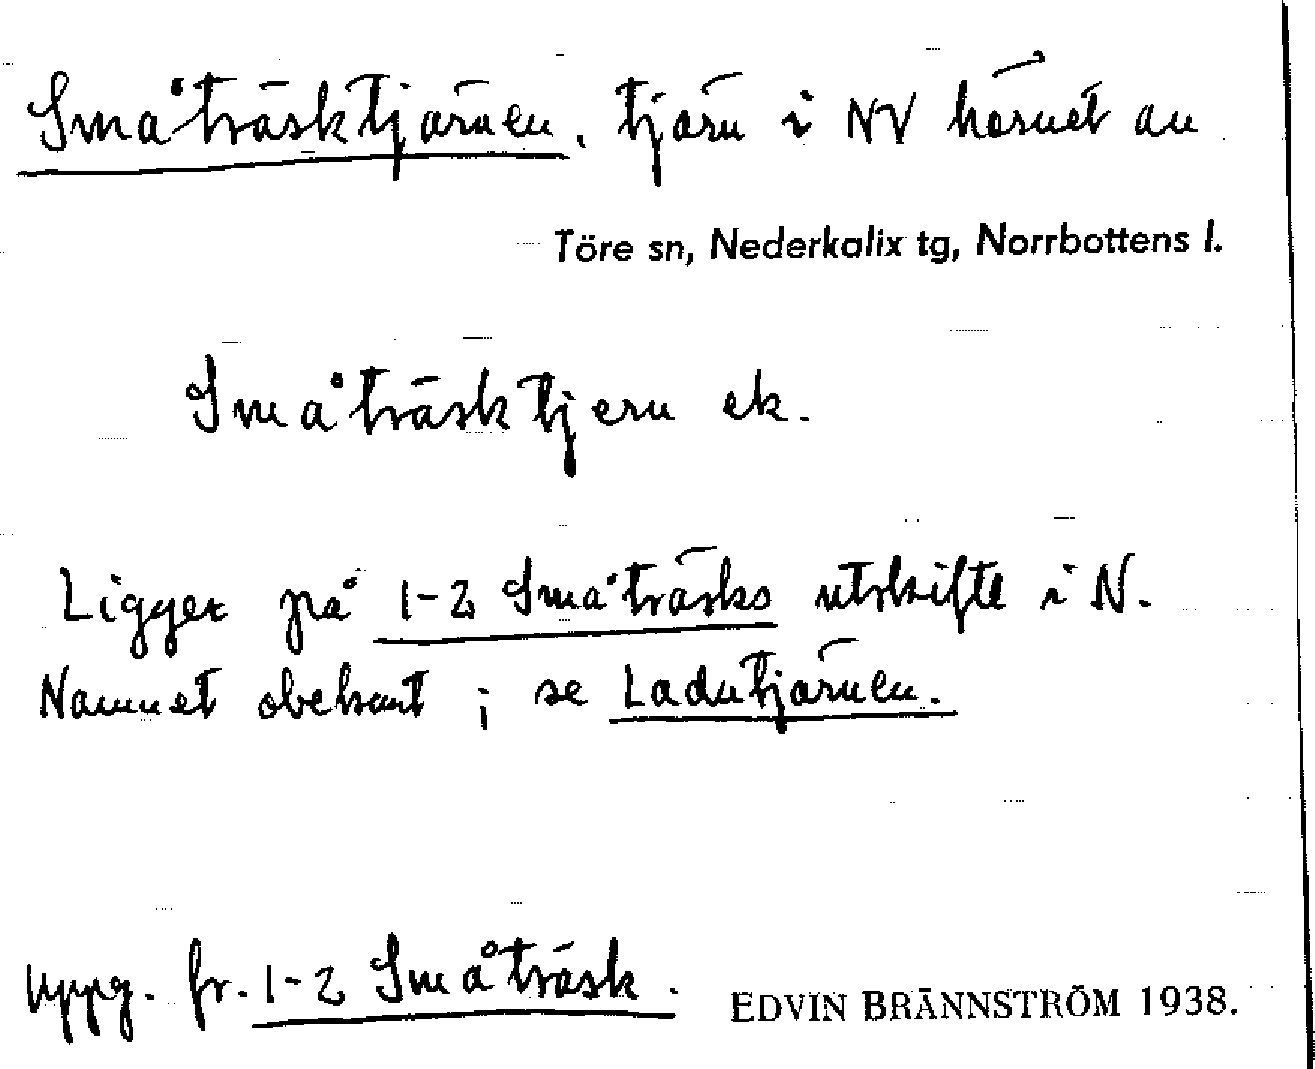 Småträsktjärnen, tjärn i NV hörnet av
Töre sn, Nederkalix tg, Norrbottens l.
Småträsktjern ek.
Ligger på 1-2 Småträsks utskifte i N.
Namnet obekant; se Ladutjärnen.
Uppg. fr. 1-2 Småträsk.
EDVIN BRÄNNSTRÖM 1938.